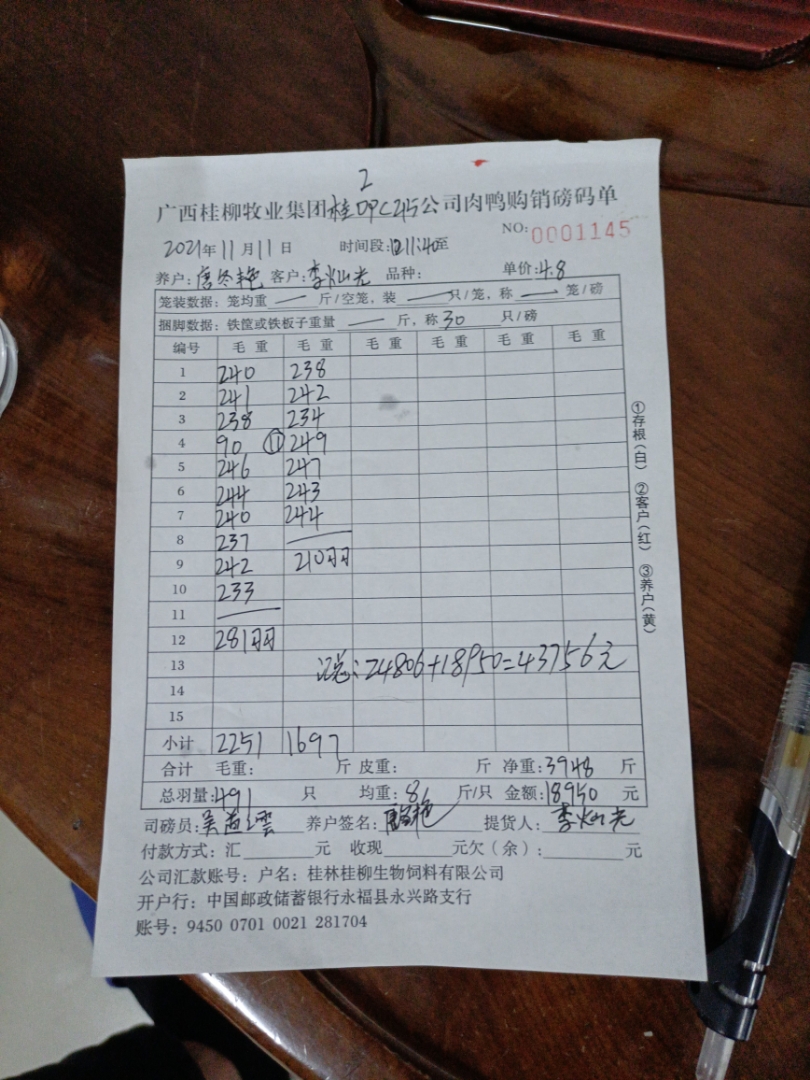 2
广西桂柳牧业集团桂DPC215公司肉鸭购销磅码单
NO: 0001145
2021年11月11日 时间段:11:40至
养户:唐冬艳 客户:李灿光 品种: 单价:4.8
笼装数据: 笼均重 — 斤/空笼, 装 — 只/笼, 称 — 笼/磅
捆脚数据: 铁筐或铁板子重量 — 斤, 称30 只/磅
编号 毛重 毛重 毛重 毛重 毛重 毛重
1 240 238
2 241 242
3 238 234
4 90 ⑪ 249
5 246 247
6 244 243
7 240 244
8 237
9 242 210羽
10 233
11
12 281羽
13 汇总:24806+18950=43756元
14
15
小计 2251 1697
合计 毛重: 斤 皮重: 斤 净重:3948 斤
总羽量:491 只 均重:8 斤/只 金额:18950 元
司磅员:吴 养户签名:唐冬艳 提货人:李灿光
付款方式: 汇 元 收现 元欠(余): 元
公司汇款账号: 户名: 桂林桂柳生物饲料有限公司
开户行: 中国邮政储蓄银行永福县永兴路支行
账号: 9450 0701 0021 281704
①存根(白) ②客户(红) ③养户(黄)